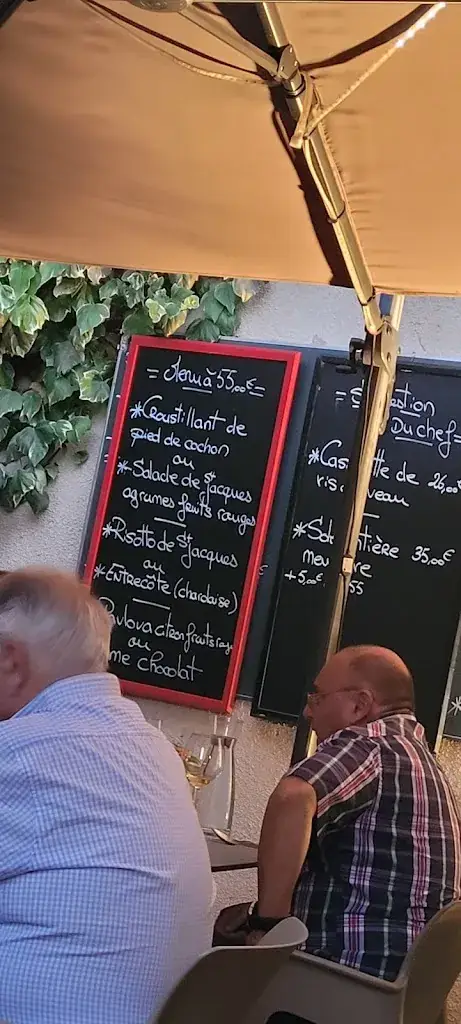 = Menu à 55,00€ =
*Croustillant de
pied de cochon
ou
*Salade de St Jacques
agrumes fruits rouges
*Risotto de St Jacques
ou
*Entrecôte (charolaise)
Pavlova citron fruits
ou
me chocolat
Du chef=
de 26,00€
ris veau
*Sol ntière 35,00€
meu re
+5,00€ 55